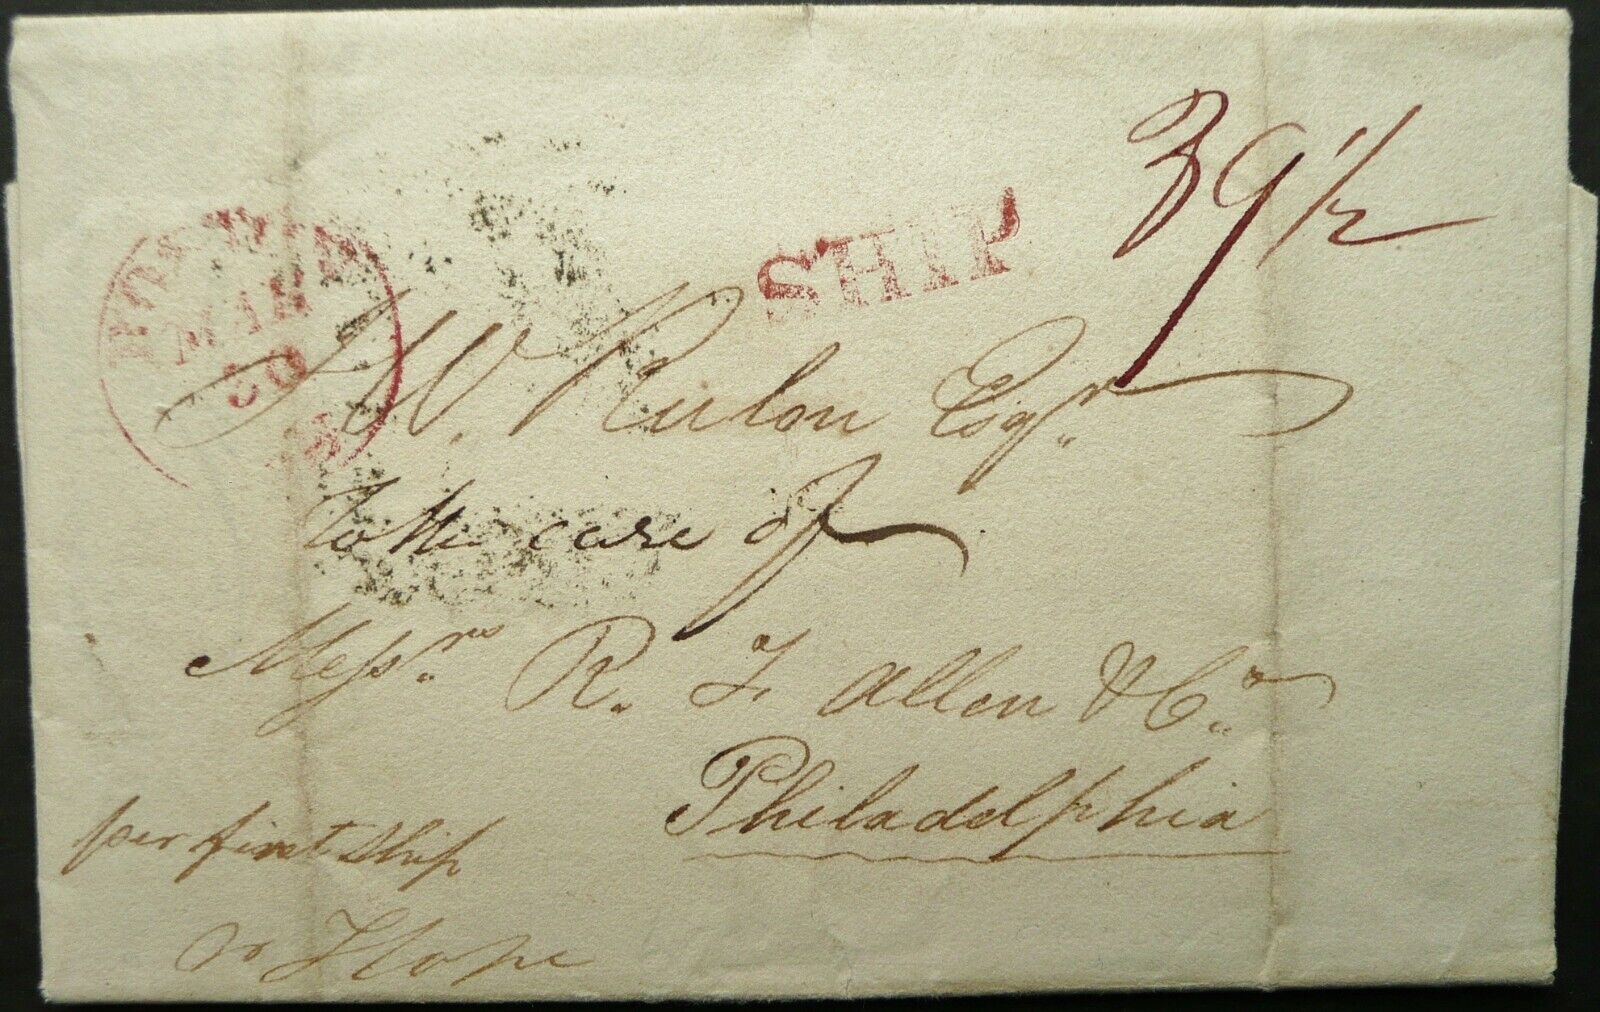 39 1/2
SHIP
BOSTON
MAR
30
MS
J W. Rulon Esqr.
to the care of
Messrs. R. F. Allen & Co.
Philadelphia
per first Ship
pr Hope